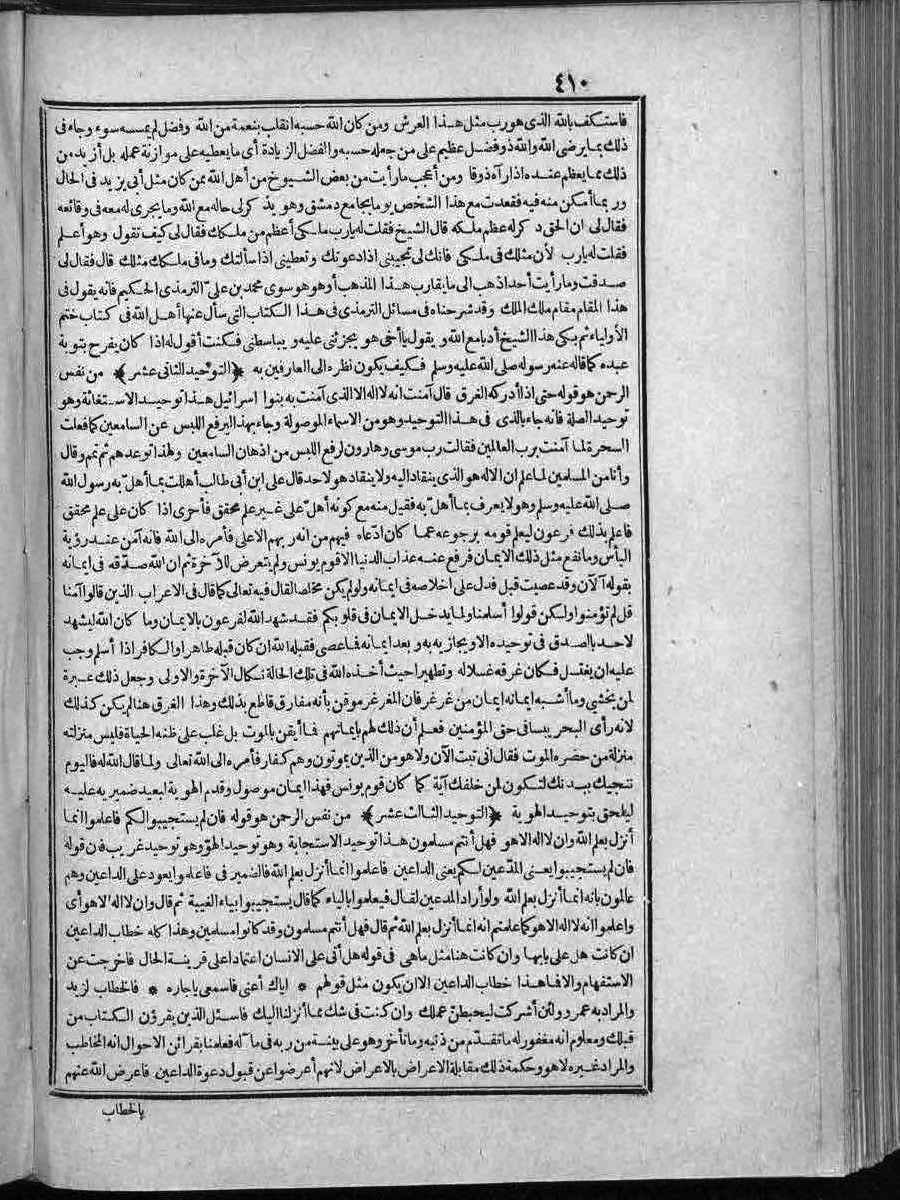 ٤١٠
فاستكف بالله الذى هو رب مثل هذا العرش ومن كان الله حسبه انقلب بنعمة من الله وفضل لم يمسسه سوء وجاء فى
ذلك بما يرضى الله والله ذو فضل عظيم على من جعله حسبه والفضل الزيادة أى ما يعطيه على موازنة عمله بل أزيد من
ذلك مما يعظم عنده اذا رآه ذوقا ومن أعجب ما رأيت من بعض الشيوخ من أهل الله ممن كان مثل أبى يزيد فى الحال
وربما أمكن منه فيه فقعدت مع هذا الشخص يوما بجامع دمشق وهو يذكر لى حاله مع الله وما يجرى له معه فى وقائعه
فقال لى ان الحق ذكر له عظم ملكه قال الشيخ فقلت له يا رب ملكى أعظم من ملكك فقال لى كيف تقول وهو أعلم
فقلت له يا رب لأن مثلك فى ملكى فانك لى تجيبنى اذا دعوتك وتعطينى اذا سألتك وما فى ملكك مثلك قال فقال لى
صدقت وما رأيت أحدا ذهب الى ما يقارب هذا المذهب أو هو هو سوى محمد بن علىّ الترمذى الحكيم فانه يقول فى
هذا المقام مقام ملك الملك وقد شرحناه فى مسائل الترمذى فى هذا الكتاب التى سأل عنها أهل الله فى كتاب ختم
الأولياء ثم بكى هذا الشيخ أدبا مع الله ويقول يا أخى هو يجرئنى عليه ويباسطنى فكنت أقول له اذا كان يفرح بتوبة
عبده كما قاله عنه رسوله صلى الله عليه وسلم فكيف يكون نظره الى العارفين به ﴿التوحيد الثانى عشر﴾ من نفس
الرحمن هو قوله حتى اذا أدركه الغرق قال آمنت انه لا اله الا الذى آمنت به بنوا اسرائيل هذا توحيد الاستغاثة وهو
توحيد الصلة فانه جاء بالذى فى هذا التوحيد وهو من الاسماء الموصولة وجاء بهذا ليرفع اللبس عن السامعين كما فعلت
السحرة لما آمنت برب العالمين فقالت رب موسى وهارون لرفع اللبس من اذهان السامعين ولهذا توعدهم ثم تمم وقال
وأنا من المسلمين لما علم ان الاله هو الذى ينقاد اليه ولا ينقاد هو لاحد قال على ابن أبى طالب أهللت بما أهلّ به رسول الله
صلى الله عليه وسلم وهو لا يعرف بما أهلّ به فقبل منه مع كونه أهلّ على غير علم محقق فأحرى اذا كان على علم محقق
فاعلم بذلك فرعون ليعلم قومه برجوعه عما كان ادّعاه فيهم من انه ربهم الاعلى فأمره الى الله فانه آمن عند رؤية
البأس وما نفع مثل ذلك الايمان فرفع عنه عذاب الدنيا الا قوم يونس ولم يتعرض للآخرة ثم ان الله صدّقه فى ايمانه
بقوله آلآن وقد عصيت قبل فدل على اخلاصه فى ايمانه ولو لم يكن مخلصا لقال فيه تعالى كما قال فى الاعراب الذين قالوا آمنا
قل لم تؤمنوا ولكن قولوا أسلمنا ولما يدخل الايمان فى قلوبكم فقد شهد الله لفرعون بالايمان وما كان الله ليشهد
لاحد بالصدق فى توحيده الا ويجازيه به وبعد ايمانه فما عصى فقبله الله ان كان قبله طاهرا والكافر اذا أسلم وجب
عليه ان يغتسل فكان غرقه غسلا له وتطهيرا حيث أخذه الله فى تلك الحالة نكال الآخرة والاولى وجعل ذلك عبرة
لمن يخشى وما أشبه ايمانه ايمان من غرغر فان المغرغر موقن بأنه مفارق قاطع بذلك وهذا الغرق هنا لم يكن كذلك
لانه رأى البحر يبسا فى حق المؤمنين فعلم أن ذلك لهم بايمانهم فما أيقن بالموت بل غلب على ظنه الحياة فليس منزلته
منزلة من حضره الموت فقال انى تبت الآن ولا هو من الذين يموتون وهم كفار فأمره الى الله تعالى ولما قال الله له فاليوم
ننجيك ببدنك لتكون لمن خلفك آية كما كان قوم يونس فهذا ايمان موصول وقدم الهوية ليعيد ضمير به عليه
ليلحق بتوحيد الهوية ﴿التوحيد الثالث عشر﴾ من نفس الرحمن هو قوله فان لم يستجيبوا لكم فاعلموا انما
أنزل بعلم الله وان لا اله الا هو فهل أنتم مسلمون هذا توحيد الاستجابة وهو توحيد الهو وهو توحيد غريب فان قوله
فان لم يستجيبوا يعنى المدّعين لكم يعنى الداعين فاعلموا انما أنزل بعلم الله فالضمير فى فاعلموا يعود على الداعين وهم
عالمون بانه انما أنزل بعلم الله ولو أراد المدعين لقال فيعلموا بالياء كما قال يستجيبوا بياء الغيبة ثم قال وان لا اله الا هو أى
واعلموا انه لا اله الا هو كما علمتم انه انما أنزل بعلم الله ثم قال فهل أنتم مسلمون وقد كانوا مسلمين وهذا كله خطاب الداعين
ان كانت هل على بابها وان كانت هنا مثل ما هى فى قوله هل أتى على الانسان اعتمادا على قرينة الحال فاخرجت عن
الاستفهام والا فما هذا خطاب الداعين الا ان يكون مثل قولهم * اياك أعنى فاسمعى يا جاره * فالخطاب لزيد
والمراد به عمرو ولئن أشركت ليحبطنّ عملك وان كنت فى شك مما أنزلنا اليك فاسئل الذين يقرؤن الكتاب من
قبلك ومعلوم انه مغفور له ما تقدّم من ذنبه وما تأخر وهو على بينة من ربه فى مآله فعلمنا بقرائن الاحوال انه المخاطب
والمراد غيره لا هو وحكمة ذلك مقابلة الاعراض بالاعراض لانهم أعرضوا عن قبول دعوة الداعين فاعرض الله عنهم
بالخطاب